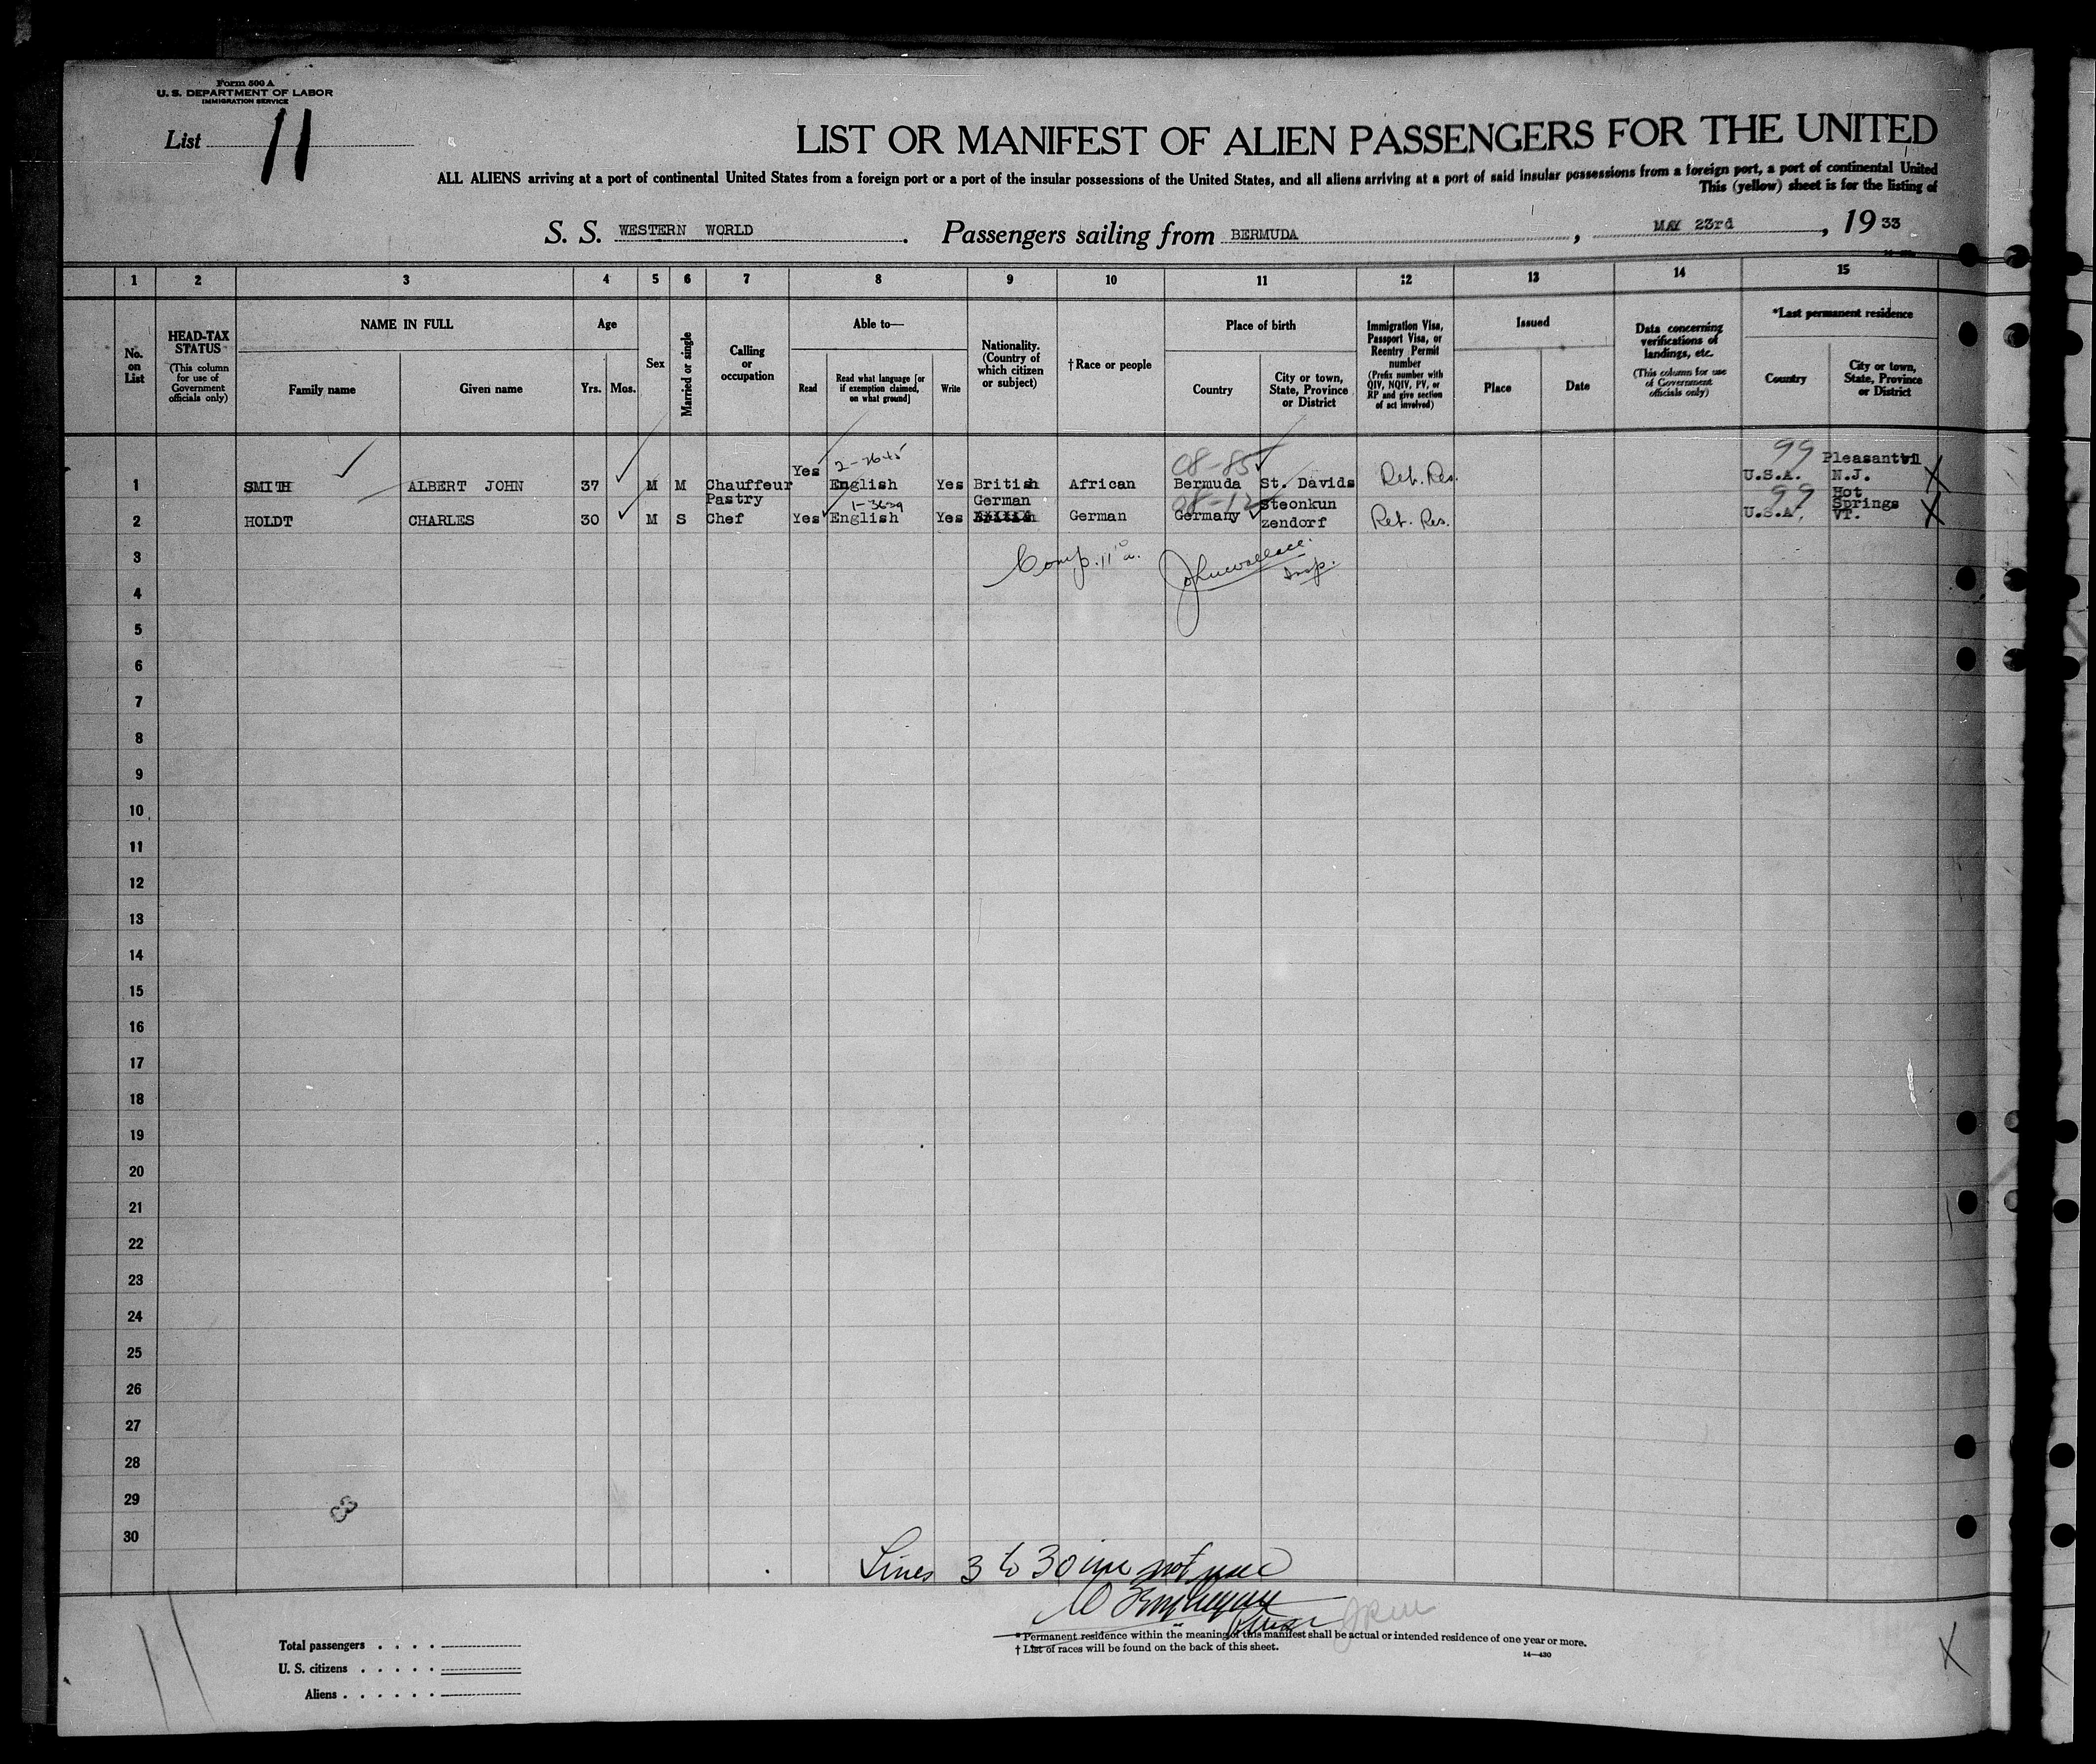 Form 500 A
U. S. DEPARTMENT OF LABOR
IMMIGRATION SERVICE
List 11
LIST OR MANIFEST OF ALIEN PASSENGERS FOR THE UNITED
ALL ALIENS arriving at a port of continental United States from a foreign port or a port of the insular possessions of the United States, and all aliens arriving at a port of said insular possessions from a foreign port, a port of continental United
This (yellow) sheet is for the listing of
S. S. WESTERN WORLD. Passengers sailing from BERMUDA, MAY 23rd, 1933
1 2 3 4 5 6 7 8 9 10 11 12 13 14 15
No. on List
HEAD-TAX STATUS
(This column for use of Government officials only)
NAME IN FULL
Family name
Given name
Age
Yrs. Mos.
Sex
Married or single
Calling or occupation
Able to—
Read
Read what language [or if exemption claimed, on what ground]
Write
Nationality. (Country of which citizen or subject)
†Race or people
Place of birth
Country
City or town, State, Province or District
Immigration Visa, Passport Visa, or Reentry Permit number
(Prefix number with QIV, NQIV, PV, or RP and give section of act involved)
Issued
Place
Date
Data concerning verifications of landings, etc.
(This column for use of Government officials only)
*Last permanent residence
Country
City or town, State, Province or District
2-2645 08-85 99
1 SMITH ALBERT JOHN 37 M M Chauffeur Yes English Yes British African Bermuda St. Davids Ret. Res. U.S.A. Pleasantvil N.J. X
08-12 99
2 HOLDT CHARLES 30 M S Pastry Chef Yes English Yes German German Germany Steonkun zendorf Ret. Res. U.S.A. Hot Springs VT. X
3
Comp. John Wallace Insp.
4
5
6
7
8
9
10
11
12
13
14
15
16
17
18
19
20
21
22
23
24
25
26
27
28
29
30
Lines 3 to 30 inc not used
Total passengers . . . .
U. S. citizens . . . . .
Aliens . . . . . .
* Permanent residence within the meaning of this manifest shall be actual or intended residence of one year or more.
† List of races will be found on the back of this sheet.
14—430
11
X